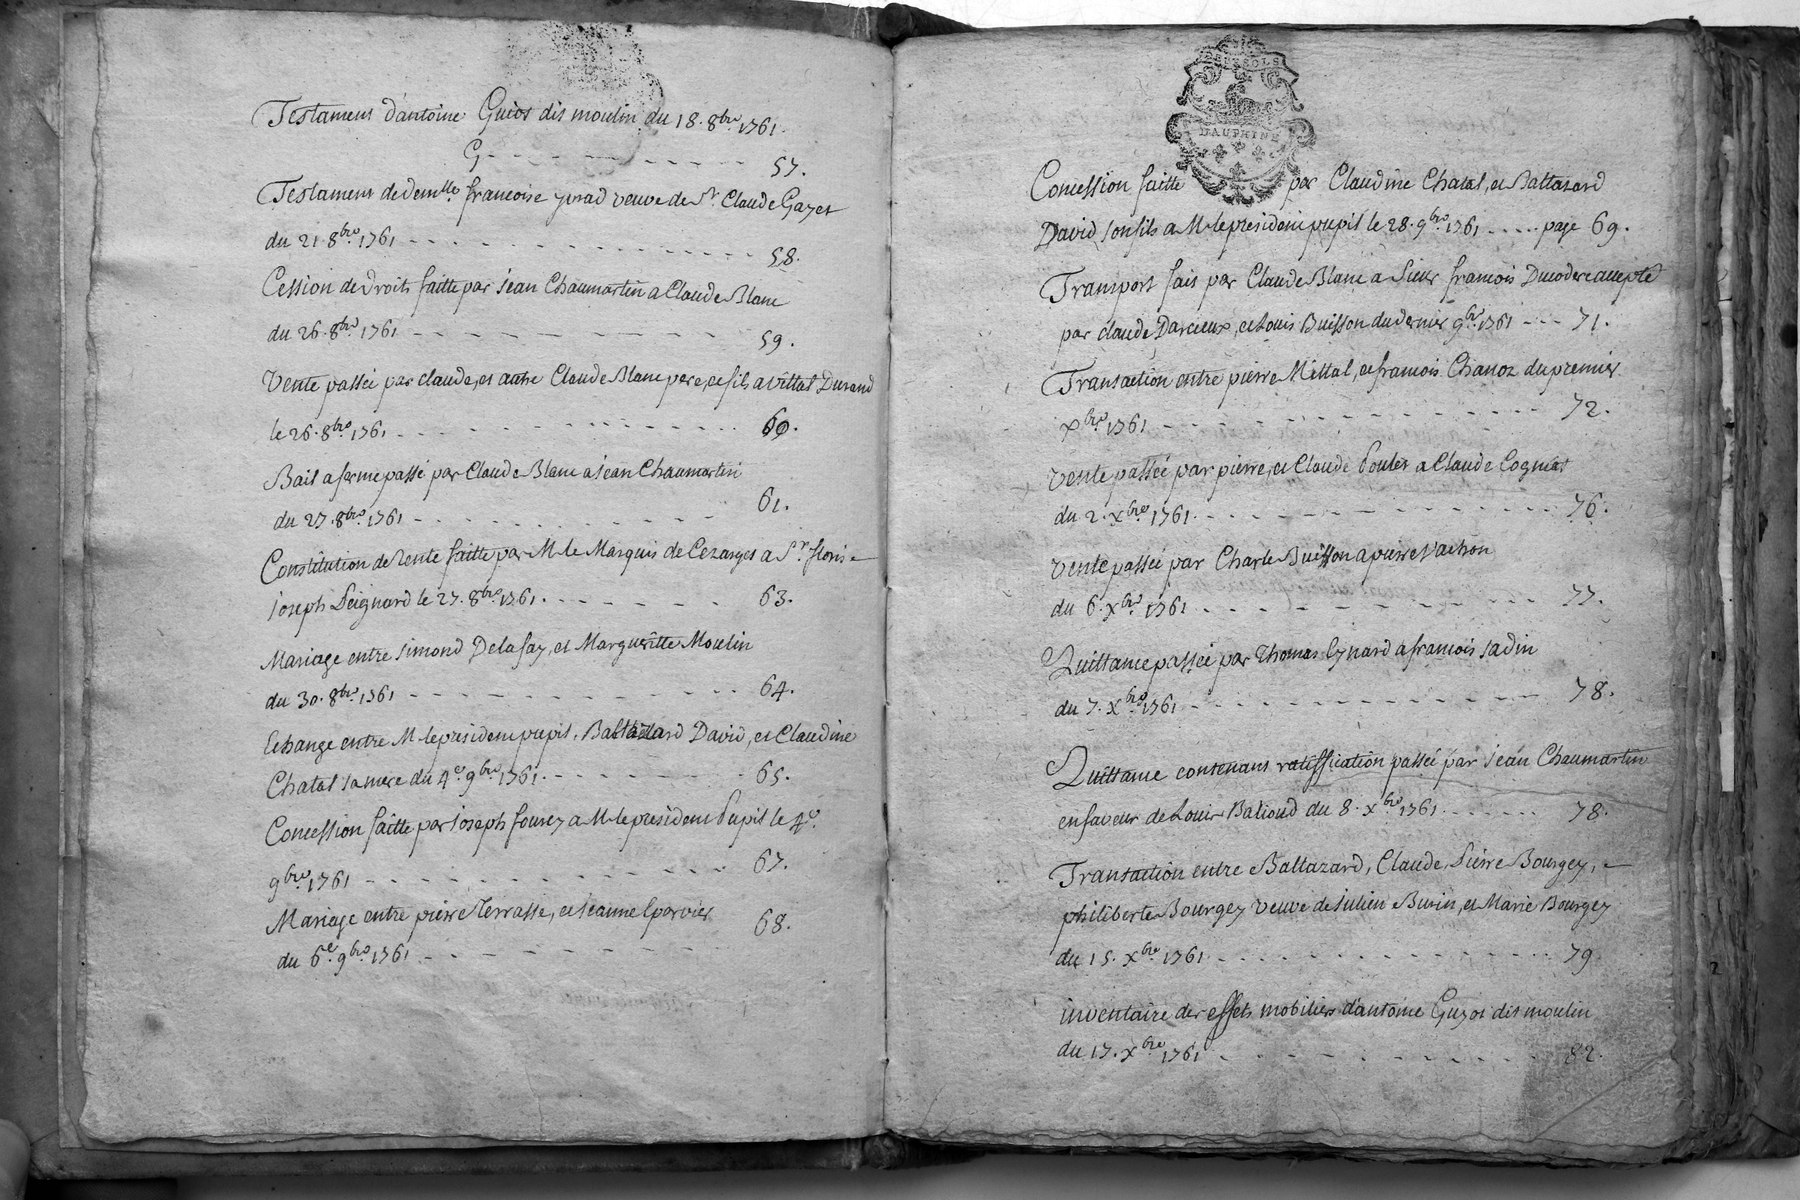 Testament d'antoine Guiot dit moulin du 18. 8bre. 1761.
G - - - - - - - - 57.
Testament de demlle. francoise yvrad veuve de Sr. Claude Gayet
du 21. 8bre. 1761 - - - - - - - - 58.
Cession de droits faitte par jean Chaumartin a Claude Blanc
du 26. 8bre. 1761 - - - - - - - - 59.
Vente passée par claude, et autre Claude Blanc pere, et fils a vittal Durand
le 26. 8bre. 1761 - - - - - - - - 60.
Bail a ferme passé par Claude Blanc a jean Chaumartin
du 27. 8bre. 1761 - - - - - - - - 61.
Constitution de rente faitte par M. le Marquis de Cezarges a Sr. floris
joseph Peignard le 27. 8bre. 1761. - - - - - - 63.
Mariage entre simond Delafay, et Margueritte Moulin
du 30. 8bre. 1761 - - - - - - - - 64.
Echange entre M. le president pupil, Baltazard David, et Claudine
Chatal sa mere du 4e. 9bre. 1761. - - - - - - 65.
Concession faitte par joseph fourey a M. le president Pupil le 4e.
9bre. 1761 - - - - - - - - 67.
Mariage entre pierre Terrasse, et jeanne Eparvier
du 6e. 9bre. 1761 - - - - - - - - 68.
SOLS
DAUPHINE
Concession faitte par Claudine Chatal, et Baltazard
David son fils a M. le president pupil le 28. 9bre. 1761 - - - - page 69.
Transport fait par Claude Blanc a Sieur francois Ducodere accepté
par claude Darcieux, et Louis Buisson du dernier 9bre. 1761 - - - 71.
Transaction entre pierre Mittal, et francois Chanoz du premier
xbre. 1761 - - - - - - - - 72.
Vente passée par pierre, et Claude Poulet a Claude Cognat
du 2. xbre. 1761. - - - - - - - - 76.
Vente passée par Charle Buisson a pierre Vachon
du 6. xbre. 1761 - - - - - - - - 77.
Quittance passée par Thomas Eynard a francois jadin
du 7. xbre. 1761 - - - - - - - - 78.
Quittance contenant ratiffication passée par jean Chaumartin
en faveur de Louis Balioud du 8. xbre. 1761. - - - - - - 78.
Transaction entre Baltazard, Claude, Pierre Bourgey,
philiberte Bourgey veuve de julien Buvin, et Marie Bourgey
du 15. xbre. 1761 - - - - - - - - 79
inventaire des effets mobiliers d'antoine Guyot dit moulin
du 17. xbre. 1761 - - - - - - - - 82.